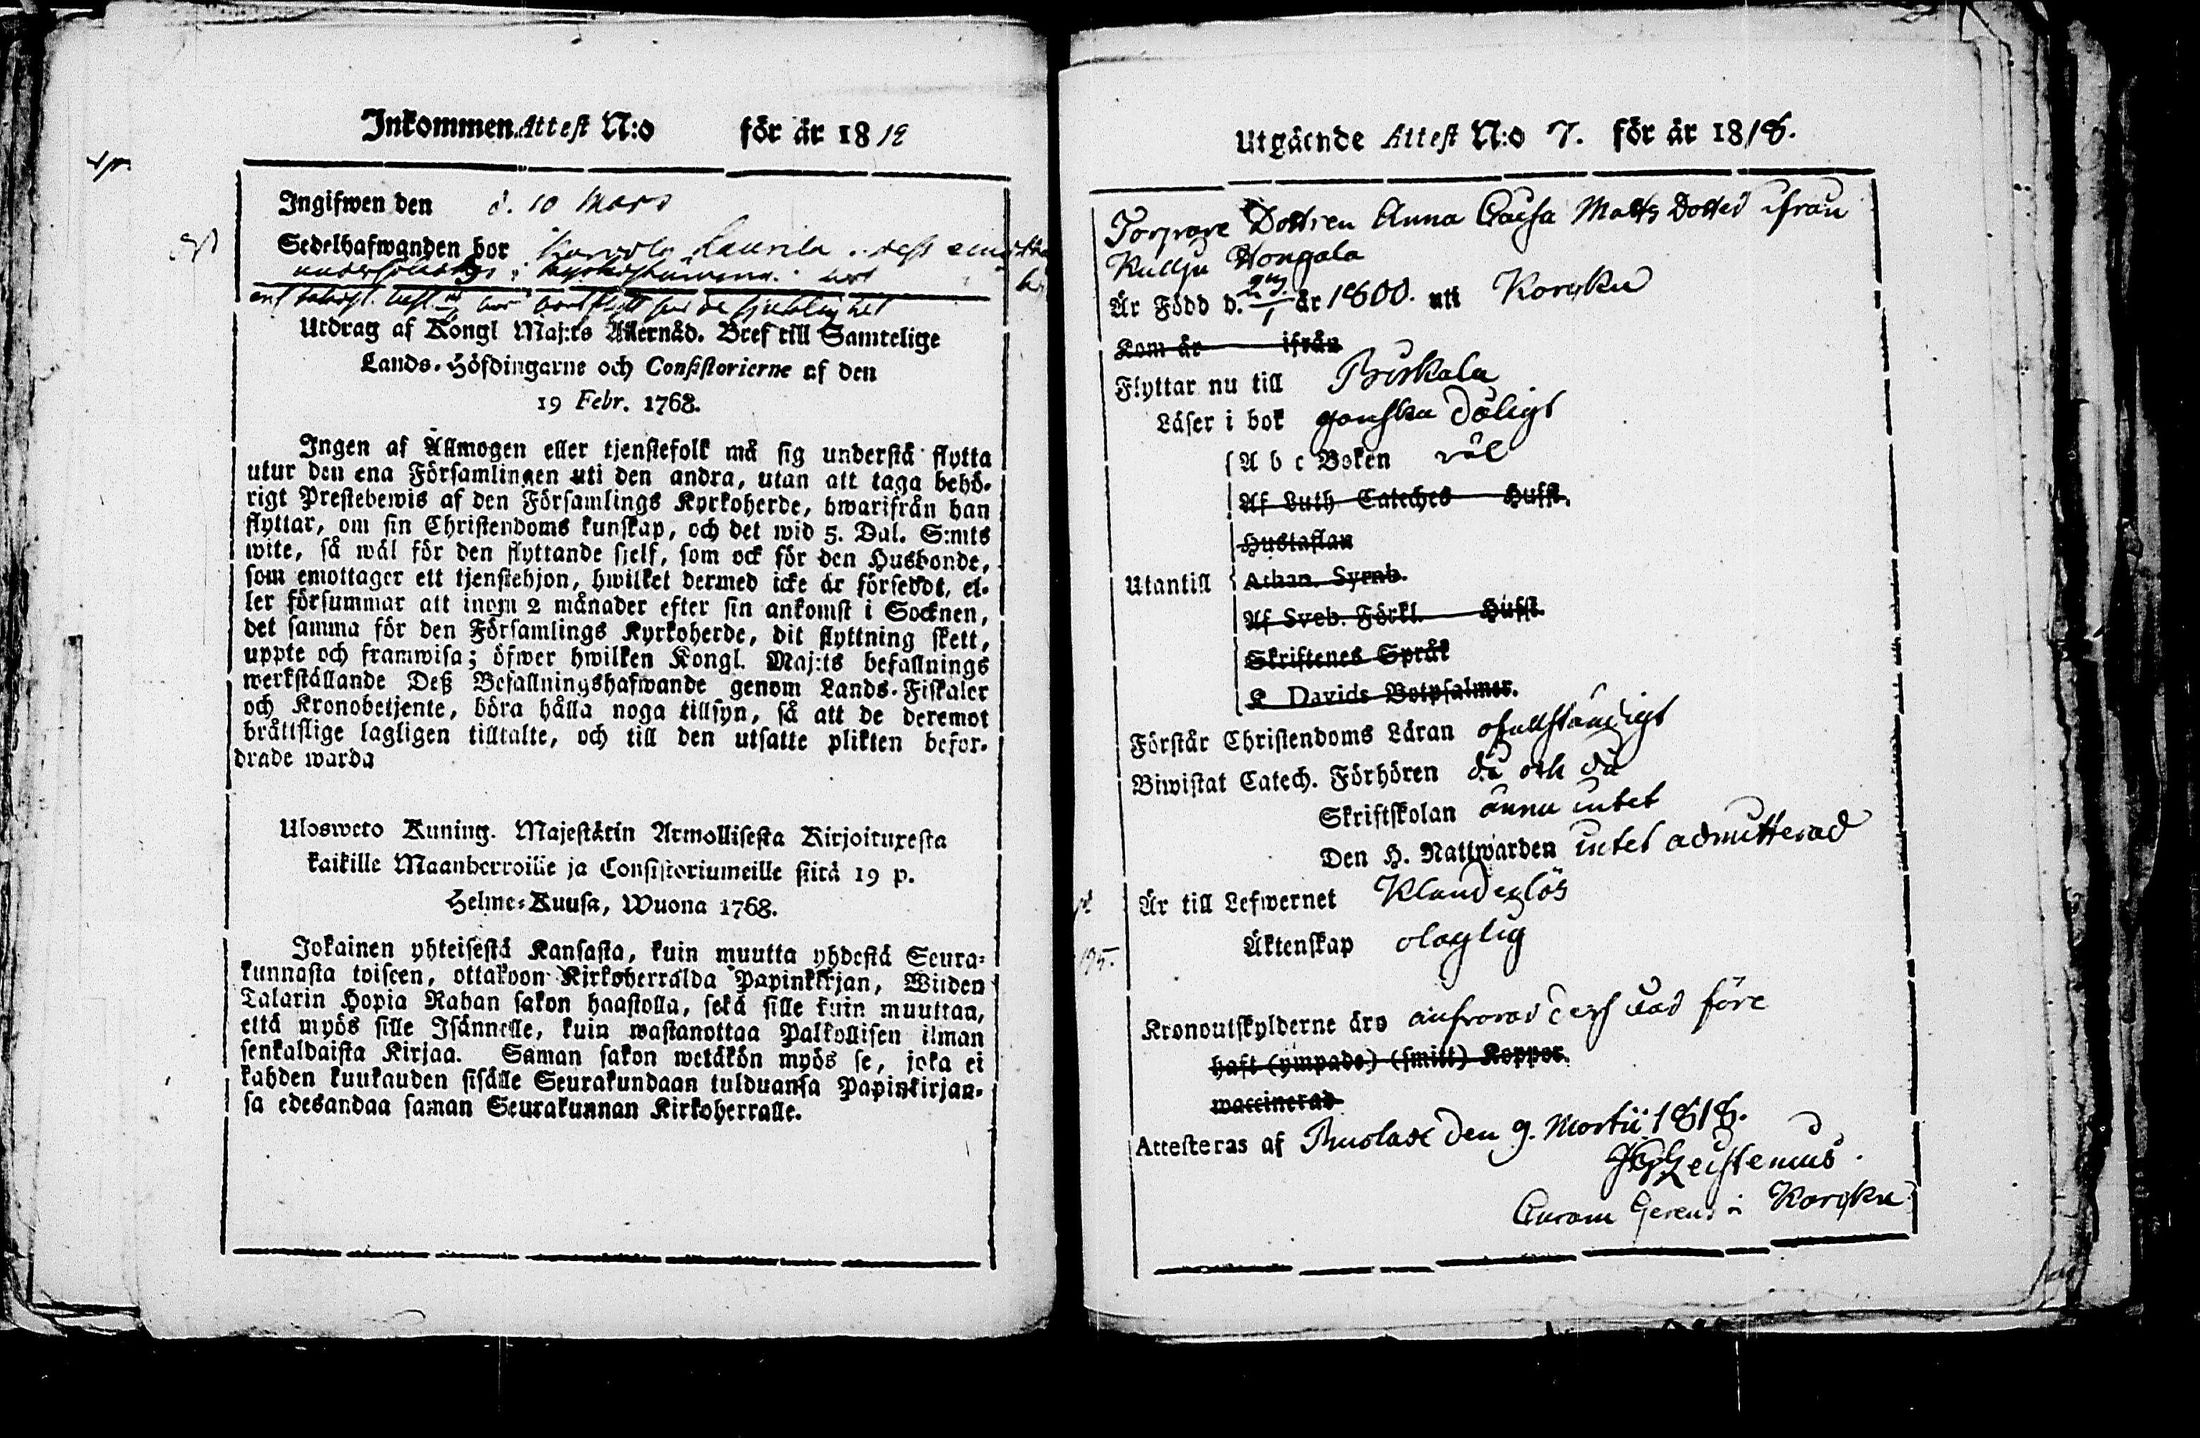 Inkommen Attest N:o för år 1819
Ingifwen den d. 10 Mars
Sedelhafwanden bor Laurila
Utdrag af Kongl Maj:ts Allernåd. Bref till Samtelige
Lands-Höfdingarne och Consistorierne af den
19 Febr. 1768.
Ingen af Allmogen eller tjenstefolk må sig understå flytta
utur den ena Församlingen uti den andra, utan att taga behö-
rigt Prestebewis af den Församlings Kyrkoherde, hwarifrån han
flyttar, om sin Christendoms kunskap, och det wid 5. Dal. S:mts
wite, så wäl för den flyttande sjelf, som ock för den Husbonde,
som emottager ett tjenstehjon, hwilket dermed icke är försedt, el-
ler försummar att inom 2 månader efter sin ankomst i Socknen,
det samma för den Församlings Kyrkoherde, dit flyttning skett,
uppte och framwisa; öfwer hwilken Kongl. Maj:ts befallnings
werkställande Deß Befallningshafwande genom Lands-Fiskaler
och Kronobetjente, böra hålla noga tillsyn, så att de deremot
bråttslige lagligen tilltalte, och till den utsatte plikten befor-
drade warda
Ulosweto Kuning. Majestätin Armollisesta Kirjoituxesta
kaikille Maanherroille ja Consistoriumeille siitä 19 p.
Helme-Kuusa, Wuona 1768.
Jokainen yhteisestä Kansasta, kuin muutta yhdestä Seura-
kunnasta toiseen, ottakoon Kirkoherralda Papinkirjan, Wiiden
Talarin Hopia Rahan sakon haastolla, sekä sille kuin muuttaa,
että myös sille Isännelle, kuin wastanottaa Palkollisen ilman
senkaldaista Kirjaa. Saman sakon wetäkön myös se, joka ei
kahden kuukauden sisälle Seurakundaan tulduansa Papinkirjan-
sa edesandaa saman Seurakunnan Kirkoherralle.
Utgående Attest N:o 7. för år 1818.
Torpare Dottren Anna Caisa Matts Dotter ifrån
Kullju Hongala
Är Född d. 29/1 år 1800. uti Korpku
Kom år ifrån
Flyttar nu till Pirkala
Läser i bok ganska dåligt
A b c Boken väl
Af Luth Cateches Hufst.
Hustaflan
Utantill Athan. Symb.
Af Sveb. Förkl. Hufst.
Skriftenes Språk
K Davids Botpsalmer.
Förstår Christendoms Läran ofullständigt
Biwistat Catech. Förhören då och då
Skriftskolan ännu intet
Den H. Nattwarden intet admitterad
Är till Lefwernet Klanderlös
Äktenskap olaglig
Kronoutskylderne äro anförord före
haft (ympade) (smitt) Koppor.
waccinerad
Attesteras af den 9. Martii 1818.
Curam Gerens i Korpku